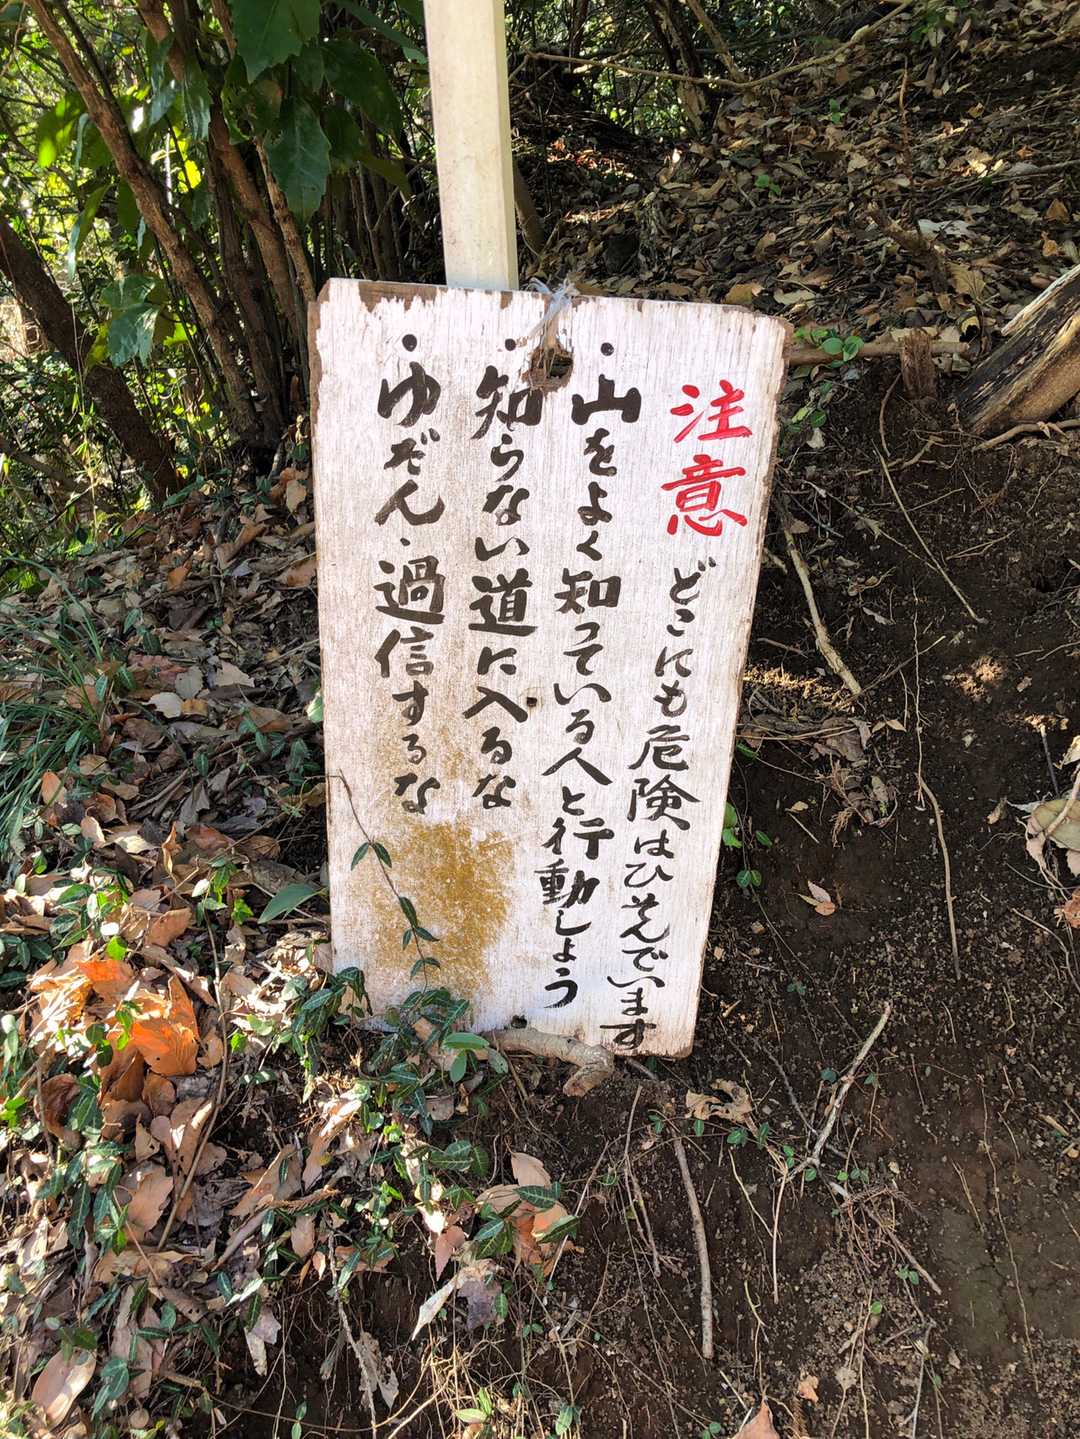 注意 どこにも危険はひそんでいます
・山をよく知っている人と行動しよう
・知らない道に入るな
・ゆだん・過信するな